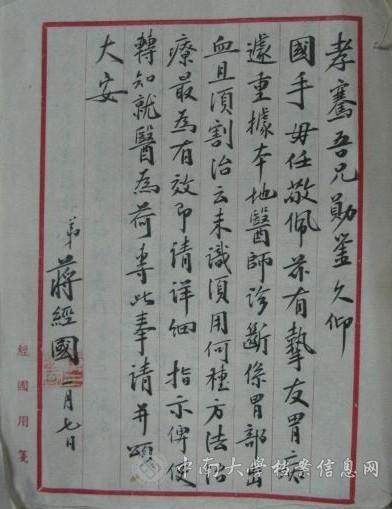 孝騫吾兄勛鑒久仰
國手毋任敬佩茲有摯友胃病
遽重據本地醫師診斷係胃部出
血且須割治云未識須用何種方法治
療最為有效即請详细 指示俾使
轉知就醫為荷專此奉请并頌
大安
弟蔣經國 二月七日
經國用箋
中南大學档案信息网